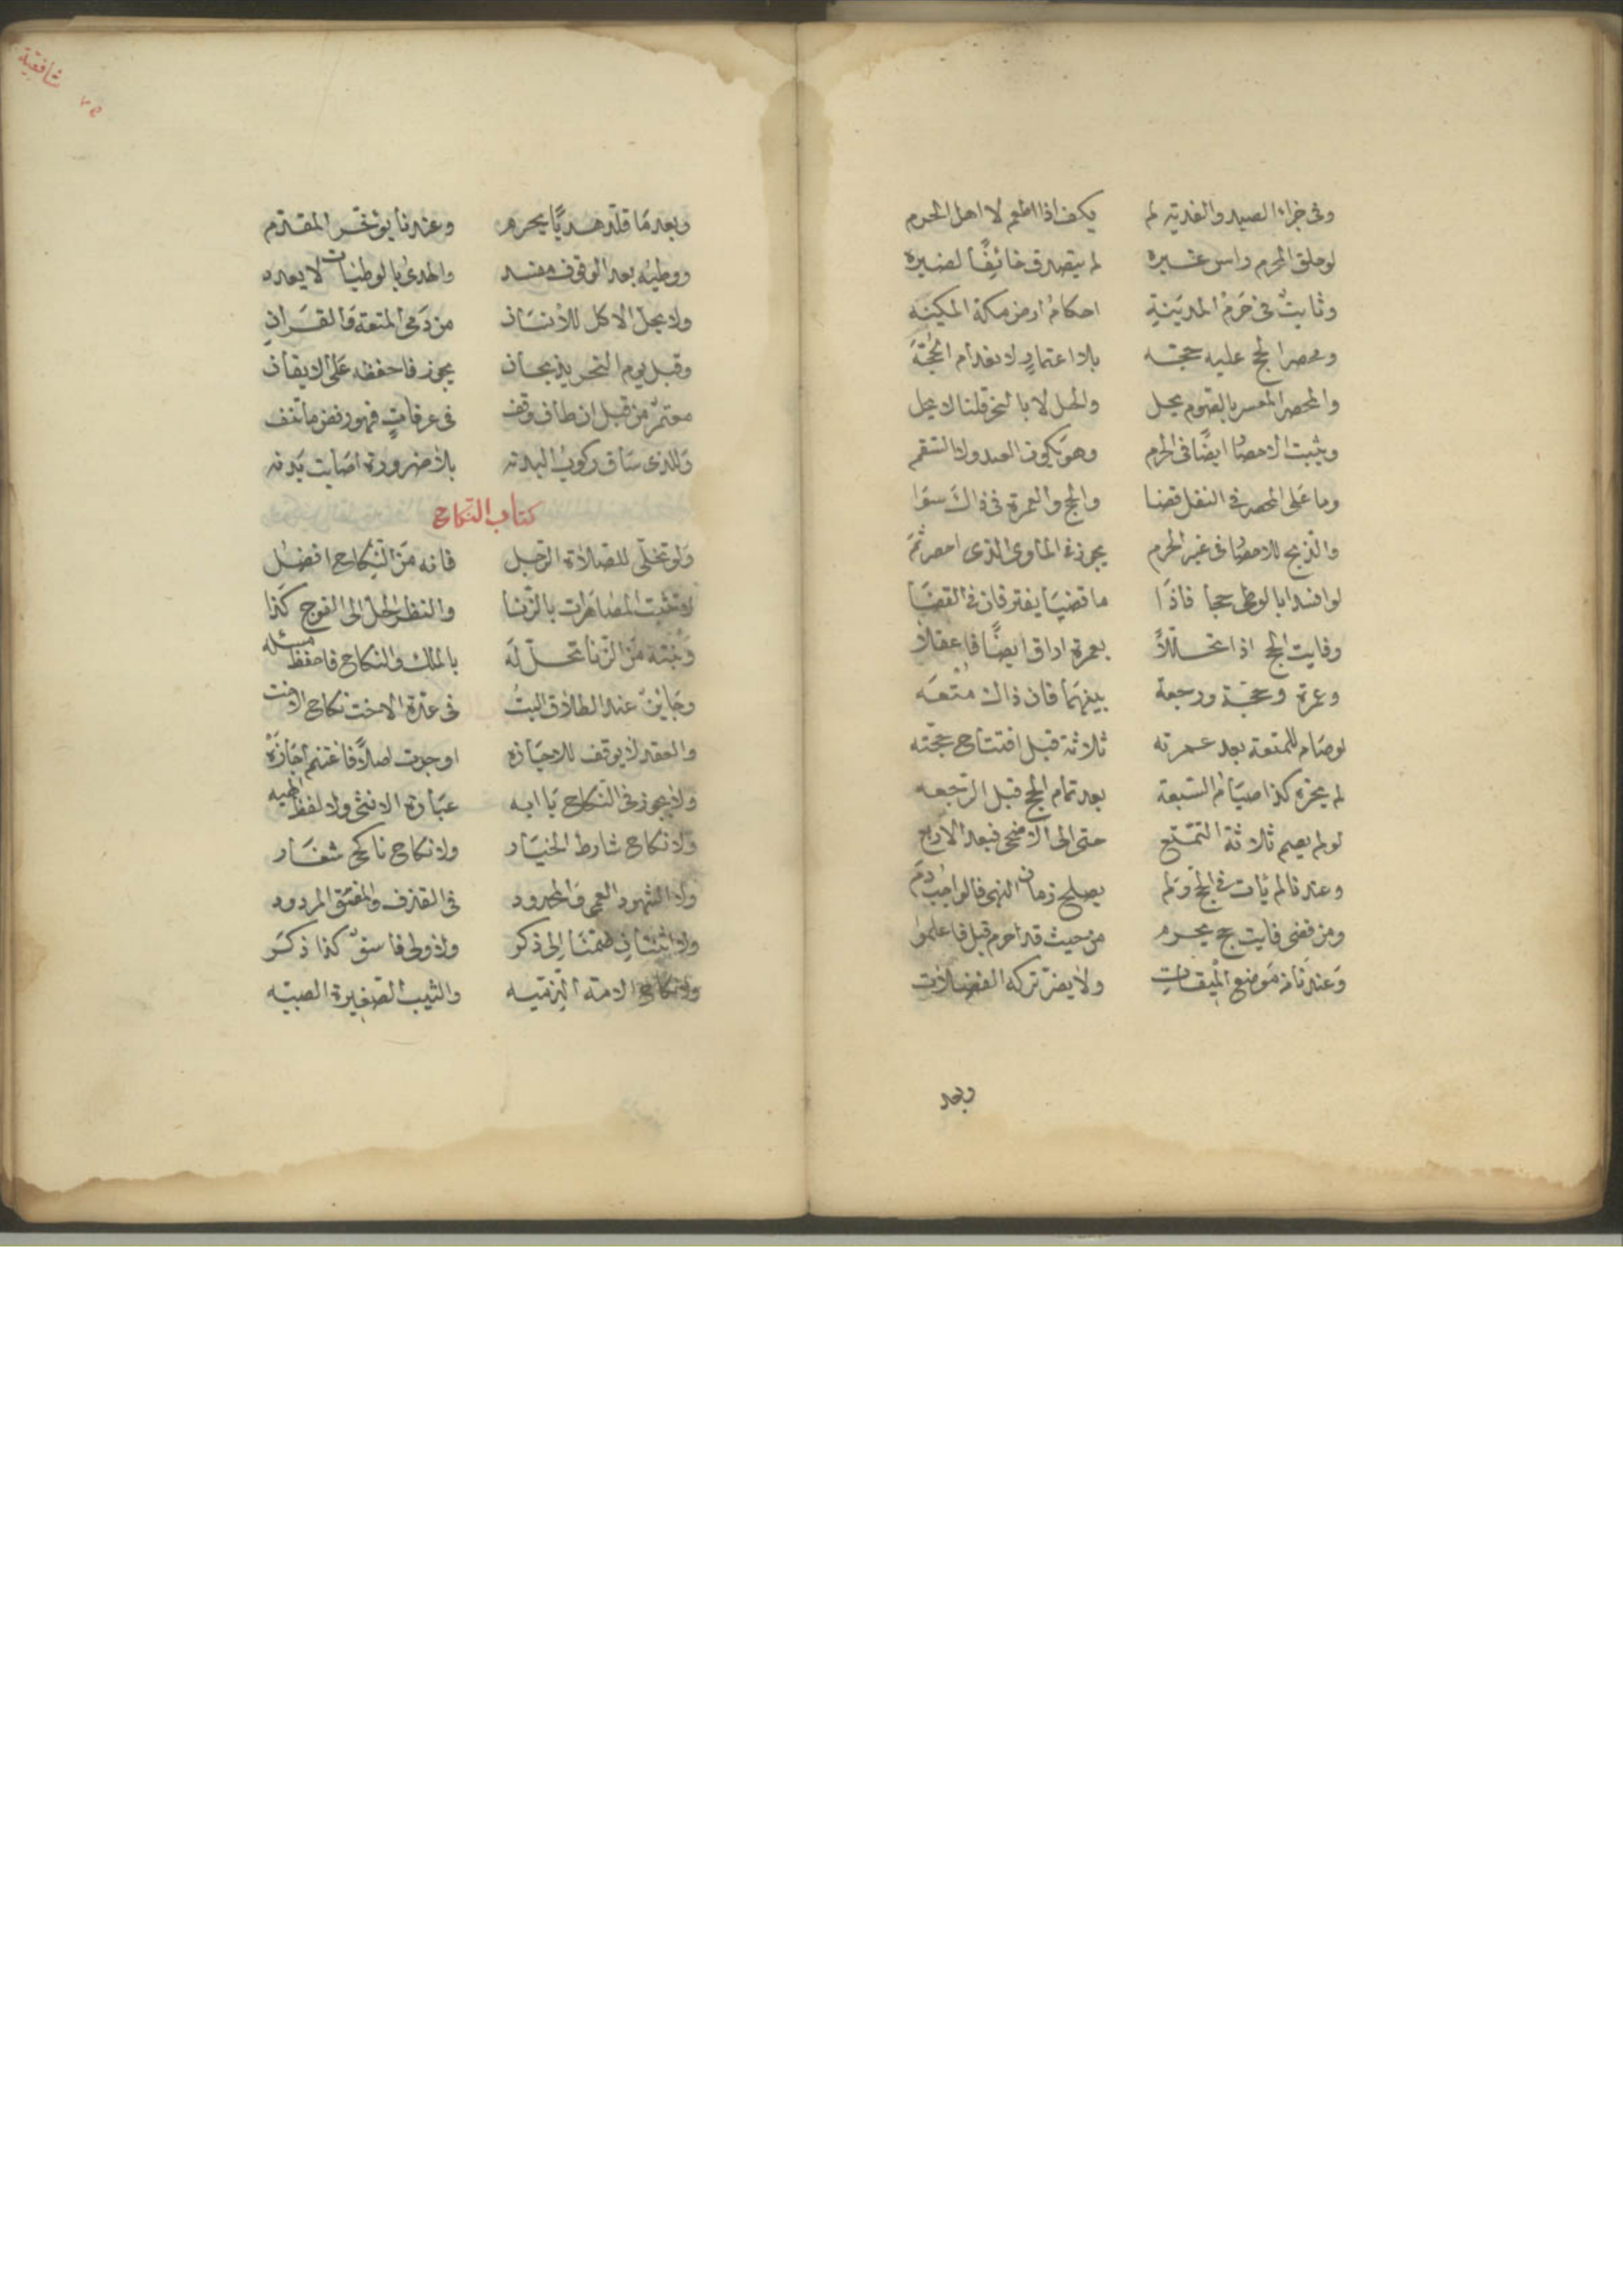 وفي جزاء الصيد والفدية لم يكف اذا اطعم لا اهل الحرم
لوحلق المحرم راس غيره لم يتصدق خائفا لضيره
وثابت في حرم المدينة احكام ارض مكة المكينه
ومحصر الحج عليه حجته بلا اعتمار لا بغد ام الحجة
والمحصر المعسر بالصوم يحل والحل لا بالنحر قلنا لا يحل
ويثبت الاحصا ايضا في الحرم وهو يكون العدو لا السقم
وما على المحصر في النفل قضا والحج والعمرة في ذاك سوا
والذبح للاحصا في غير الحرم يجوز في الماوى الذي احصر ثم
لو افسدا بالوطى حجا فاذا ما قضيا يفترقان في القضا
وفايت الحج اذا تحللا بعمرة اذاق ايضا فاعقلا
وعمرة وحجة ورجعة بينهما فان ذاك متعه
لوصام للمتعة بعد عمرته ثلاثة قبل افتتاح حجته
لم يجزه كذا صيام السبعة بعد تمام الحج قبل الرجعه
لولم يصم ثلاثة التمتع حتى الى الاضحى فبعد الاربع
وعندنا لم يات في الحج ولم يصلح زمان النهي فالواجب دم
ومن قضى فايت حج يحرم من حيث قد احرم قبل فاعلموا
وعندنا من موضع الميقات ولا يضر تركه الفضلات
وبعد
شافعية
٢٥
وبعد ما قلد هديا يحرم وعندنا يوخر المقدم
ووطيه بعد الوقوف مفسد والهدى بالوطيات لا يعدد
ولا يحل الاكل للانسان من دمي المتعة والقران
وقبل يوم النحر يذبحان يجوز فاحفظه على الايقان
معتمر من قبل ان طاف وقف في عرفات فهو رفض ما تنف
وللذي ساق ركوب البدنه بلا ضرورة اصابت بدنه
كتاب النكاح
ولو تخلى للصلاة الرجل فانه من النكاح افضل
لا تثبت المصاهرات بالزنا والنظر الحل الى الفرج كذا
وبنته من الزنا تحل له بالملك والنكاح فاحفظ مسئله
وجاين عند الطلاق البت في عدة الاخت نكاح الاخت
والعقد لا يوقف للاجازه او جزت اصلا فاغتنم اجازه
ولا يجوز في النكاح يا ابه عبارة الانثى ولا لفظ الهبه
ولا نكاح شارط الخيار ولا نكاح ناكح شغار
ولا الشهود العمي والمحدود في القذف والفسق المردود
ولا انثتان ضمتا الى ذكر ولا ولى فاسق كذا ذكر
ولا نكاح الامة الذميه والثيب الصغيرة الصبيه